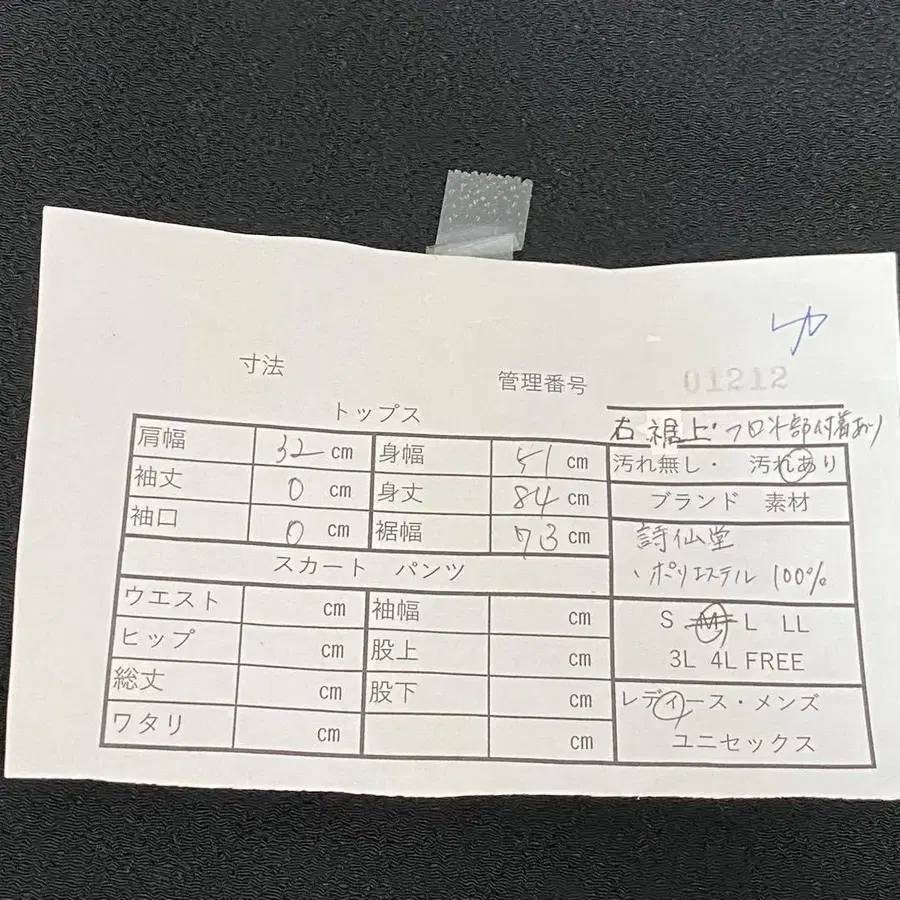 寸法
管理番号 01212
トップス
右裾上・フロント部付着あり
肩幅 32 cm 身幅 51 cm
汚れ無し・ 汚れあり
袖丈 0 cm 身丈 84 cm
ブランド 素材
袖口 0 cm 裾幅 73 cm
詩仙堂
、ポリエステル 100%
スカート パンツ
ウエスト cm 袖幅 cm
S M L LL
ヒップ cm 股上 cm
3L 4L FREE
総丈 cm 股下 cm
レディース・メンズ
ワタリ cm cm
ユニセックス